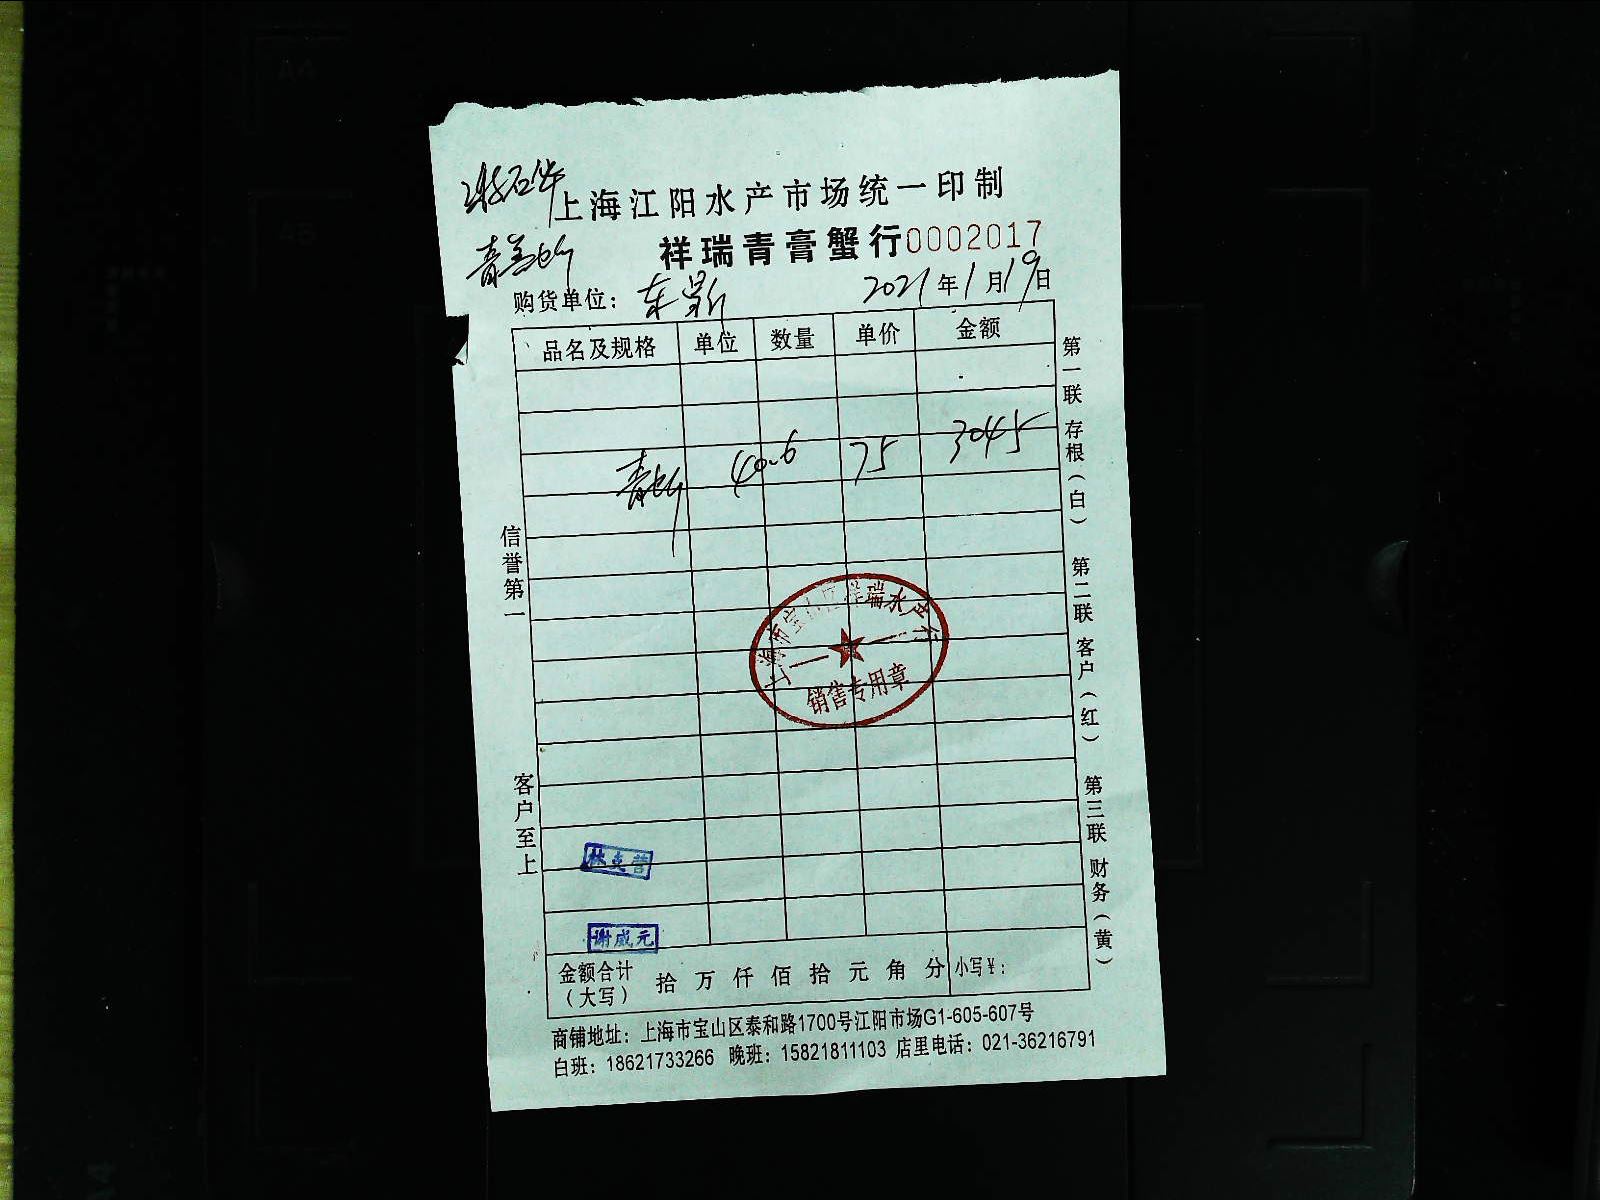 上海江阳水产市场统一印制
祥瑞青膏蟹行 0002017
购货单位： 2021年1月19日
品名及规格 单位 数量 单价 金额
40.6 75 3045
上海市宝山区祥瑞水产行
销售专用章
林克营
谢威元
金额合计（大写） 拾 万 仟 佰 拾 元 角 分 小写￥：
商铺地址：上海市宝山区泰和路1700号江阳市场G1-605-607号
白班：18621733266 晚班：15821811103 店里电话：021-36216791
信誉第一
客户至上
第一联 存根（白）
第二联 客户（红）
第三联 财务（黄）